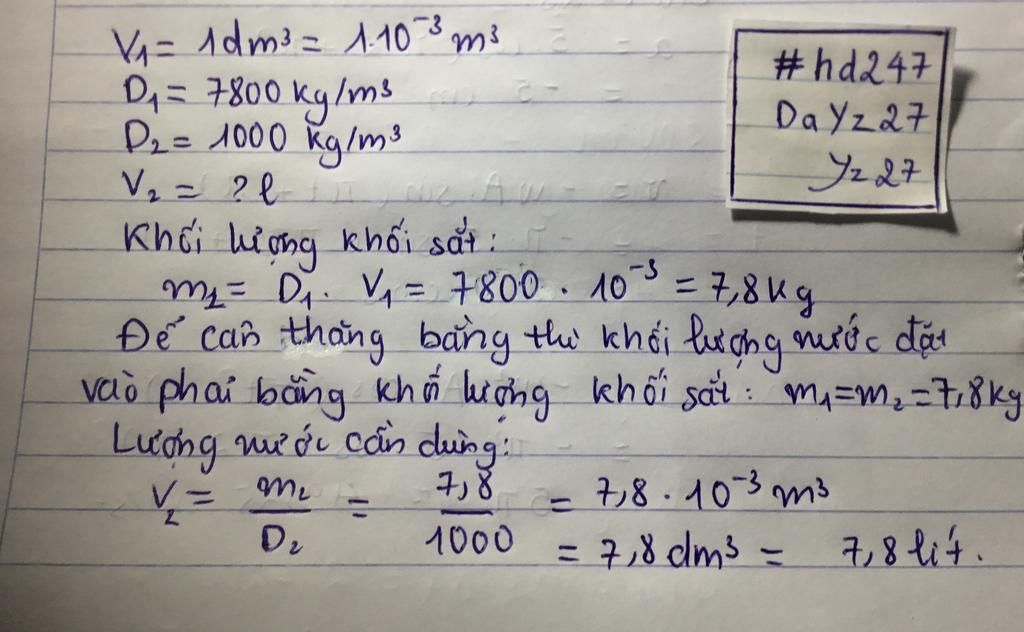 V₁ = 1dm³ = 1.10⁻³ m³
D₁ = 7800 kg/m³
D₂ = 1000 kg/m³
V₂ = ? l
Khối lượng khối sắt:
m₁ = D₁. V₁ = 7800 . 10⁻³ = 7,8 kg
Để cân thăng bằng thì khối lượng nước đặt
vào phải bằng khối lượng khối sắt: m₁=m₂=7,8kg
Lượng nước cần dùng:
V₂ = m₂/D₂ = 7,8/1000 = 7,8 . 10⁻³ m³
= 7,8 dm³ = 7,8 lít.
#hd247
DaYz27
Yz27